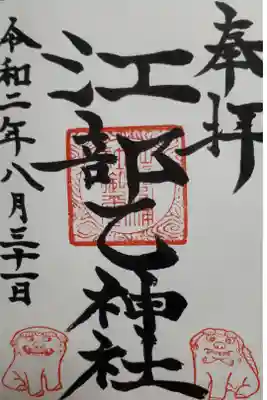 奉拝
江部乙神社
令和二年八月三十一日